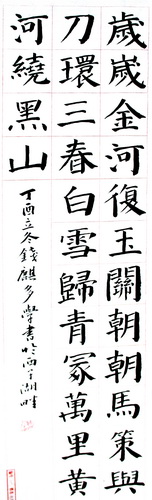 歲歲金河復玉關朝朝馬策與
刀環三春白雪歸青冢萬里黃
河繞黑山
丁酉立冬錢麒多學書於西子湖畔